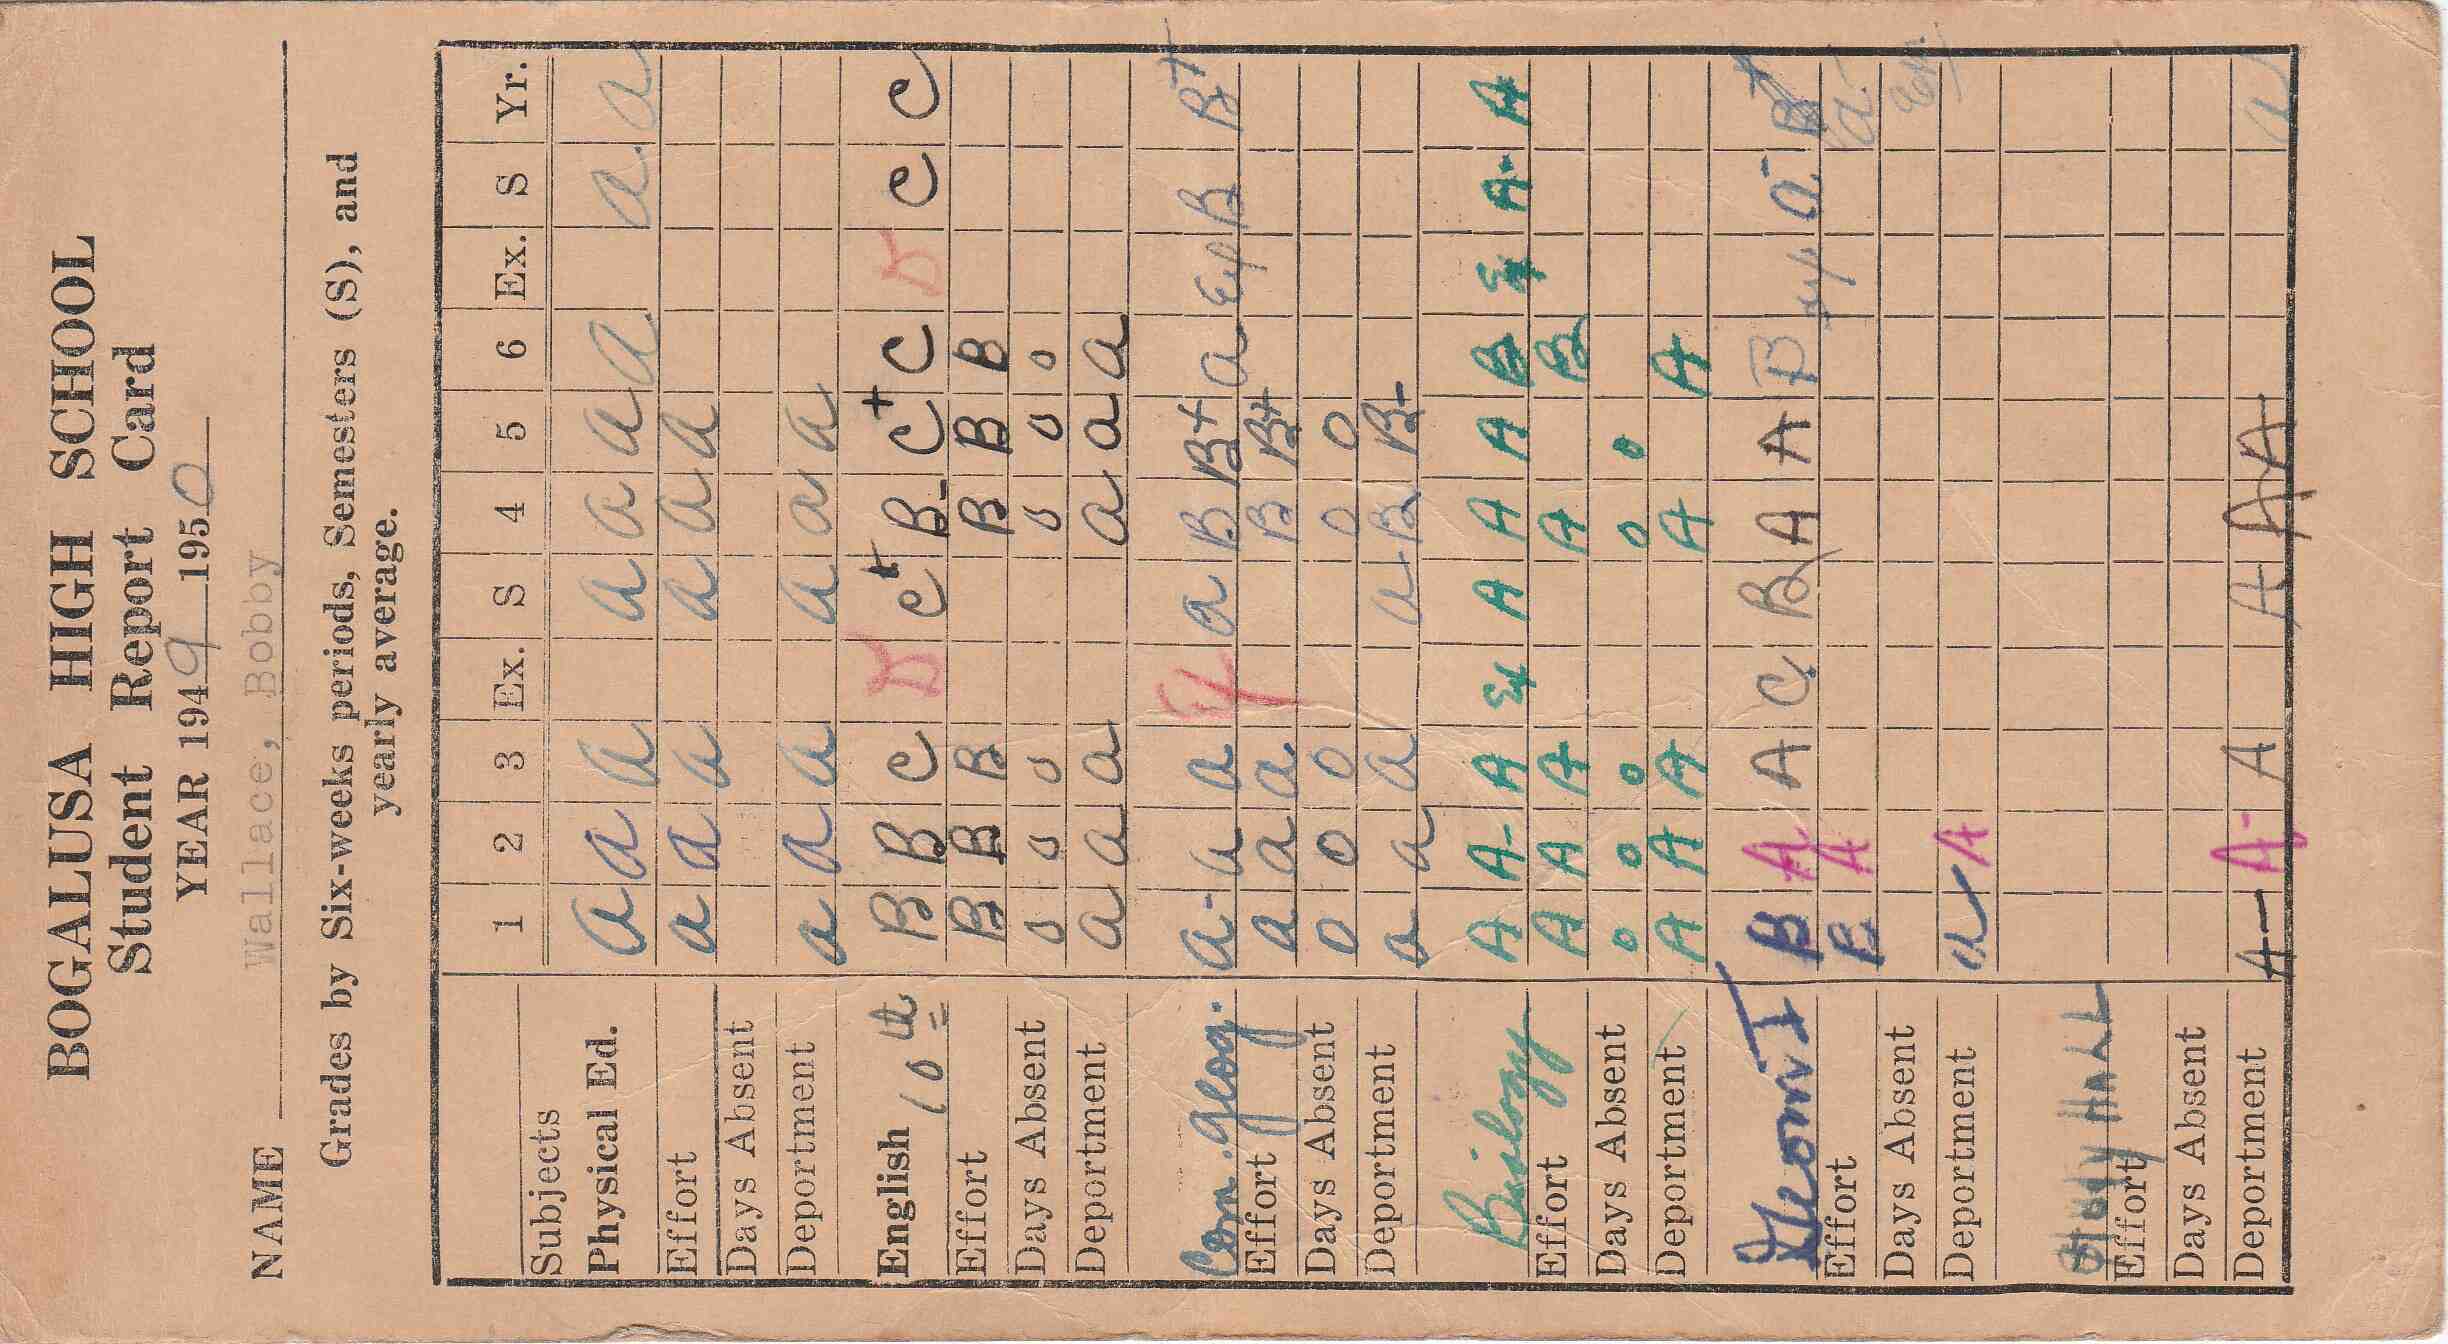 BOGALUSA HIGH SCHOOL
Student Report Card
YEAR 1949 1950
NAME Wallace, Bobby
Grades by Six-weeks periods, Semesters (S), and
yearly average.
Subjects 1 2 3 Ex. S 4 5 6 Ex. S Yr.
Physical Ed. a a a a a a a a a
Effort a a a a a a
Days Absent
Deportment a a a a a a
English 10th B B C D C+ B- C+ C D C C
Effort B B B B B B
Days Absent 0 0 0 0 0 0
Deportment a a a a a a
Com. Geog. a- a a Ex a B B+ a Ex B B+
Effort a a a B B+
Days Absent 0 0 0 0 0
Deportment a a a a- B B-
Biology A A- A Ex A A A B Ex A- A
Effort A A A A B
Days Absent 0 0 0 0 0
Deportment A A A A A
Geom I B A A C B A A B a- B+
Effort B A a-
Days Absent
Deportment a A
Study Hall
Effort
Days Absent
Deportment A- A- A A A A a